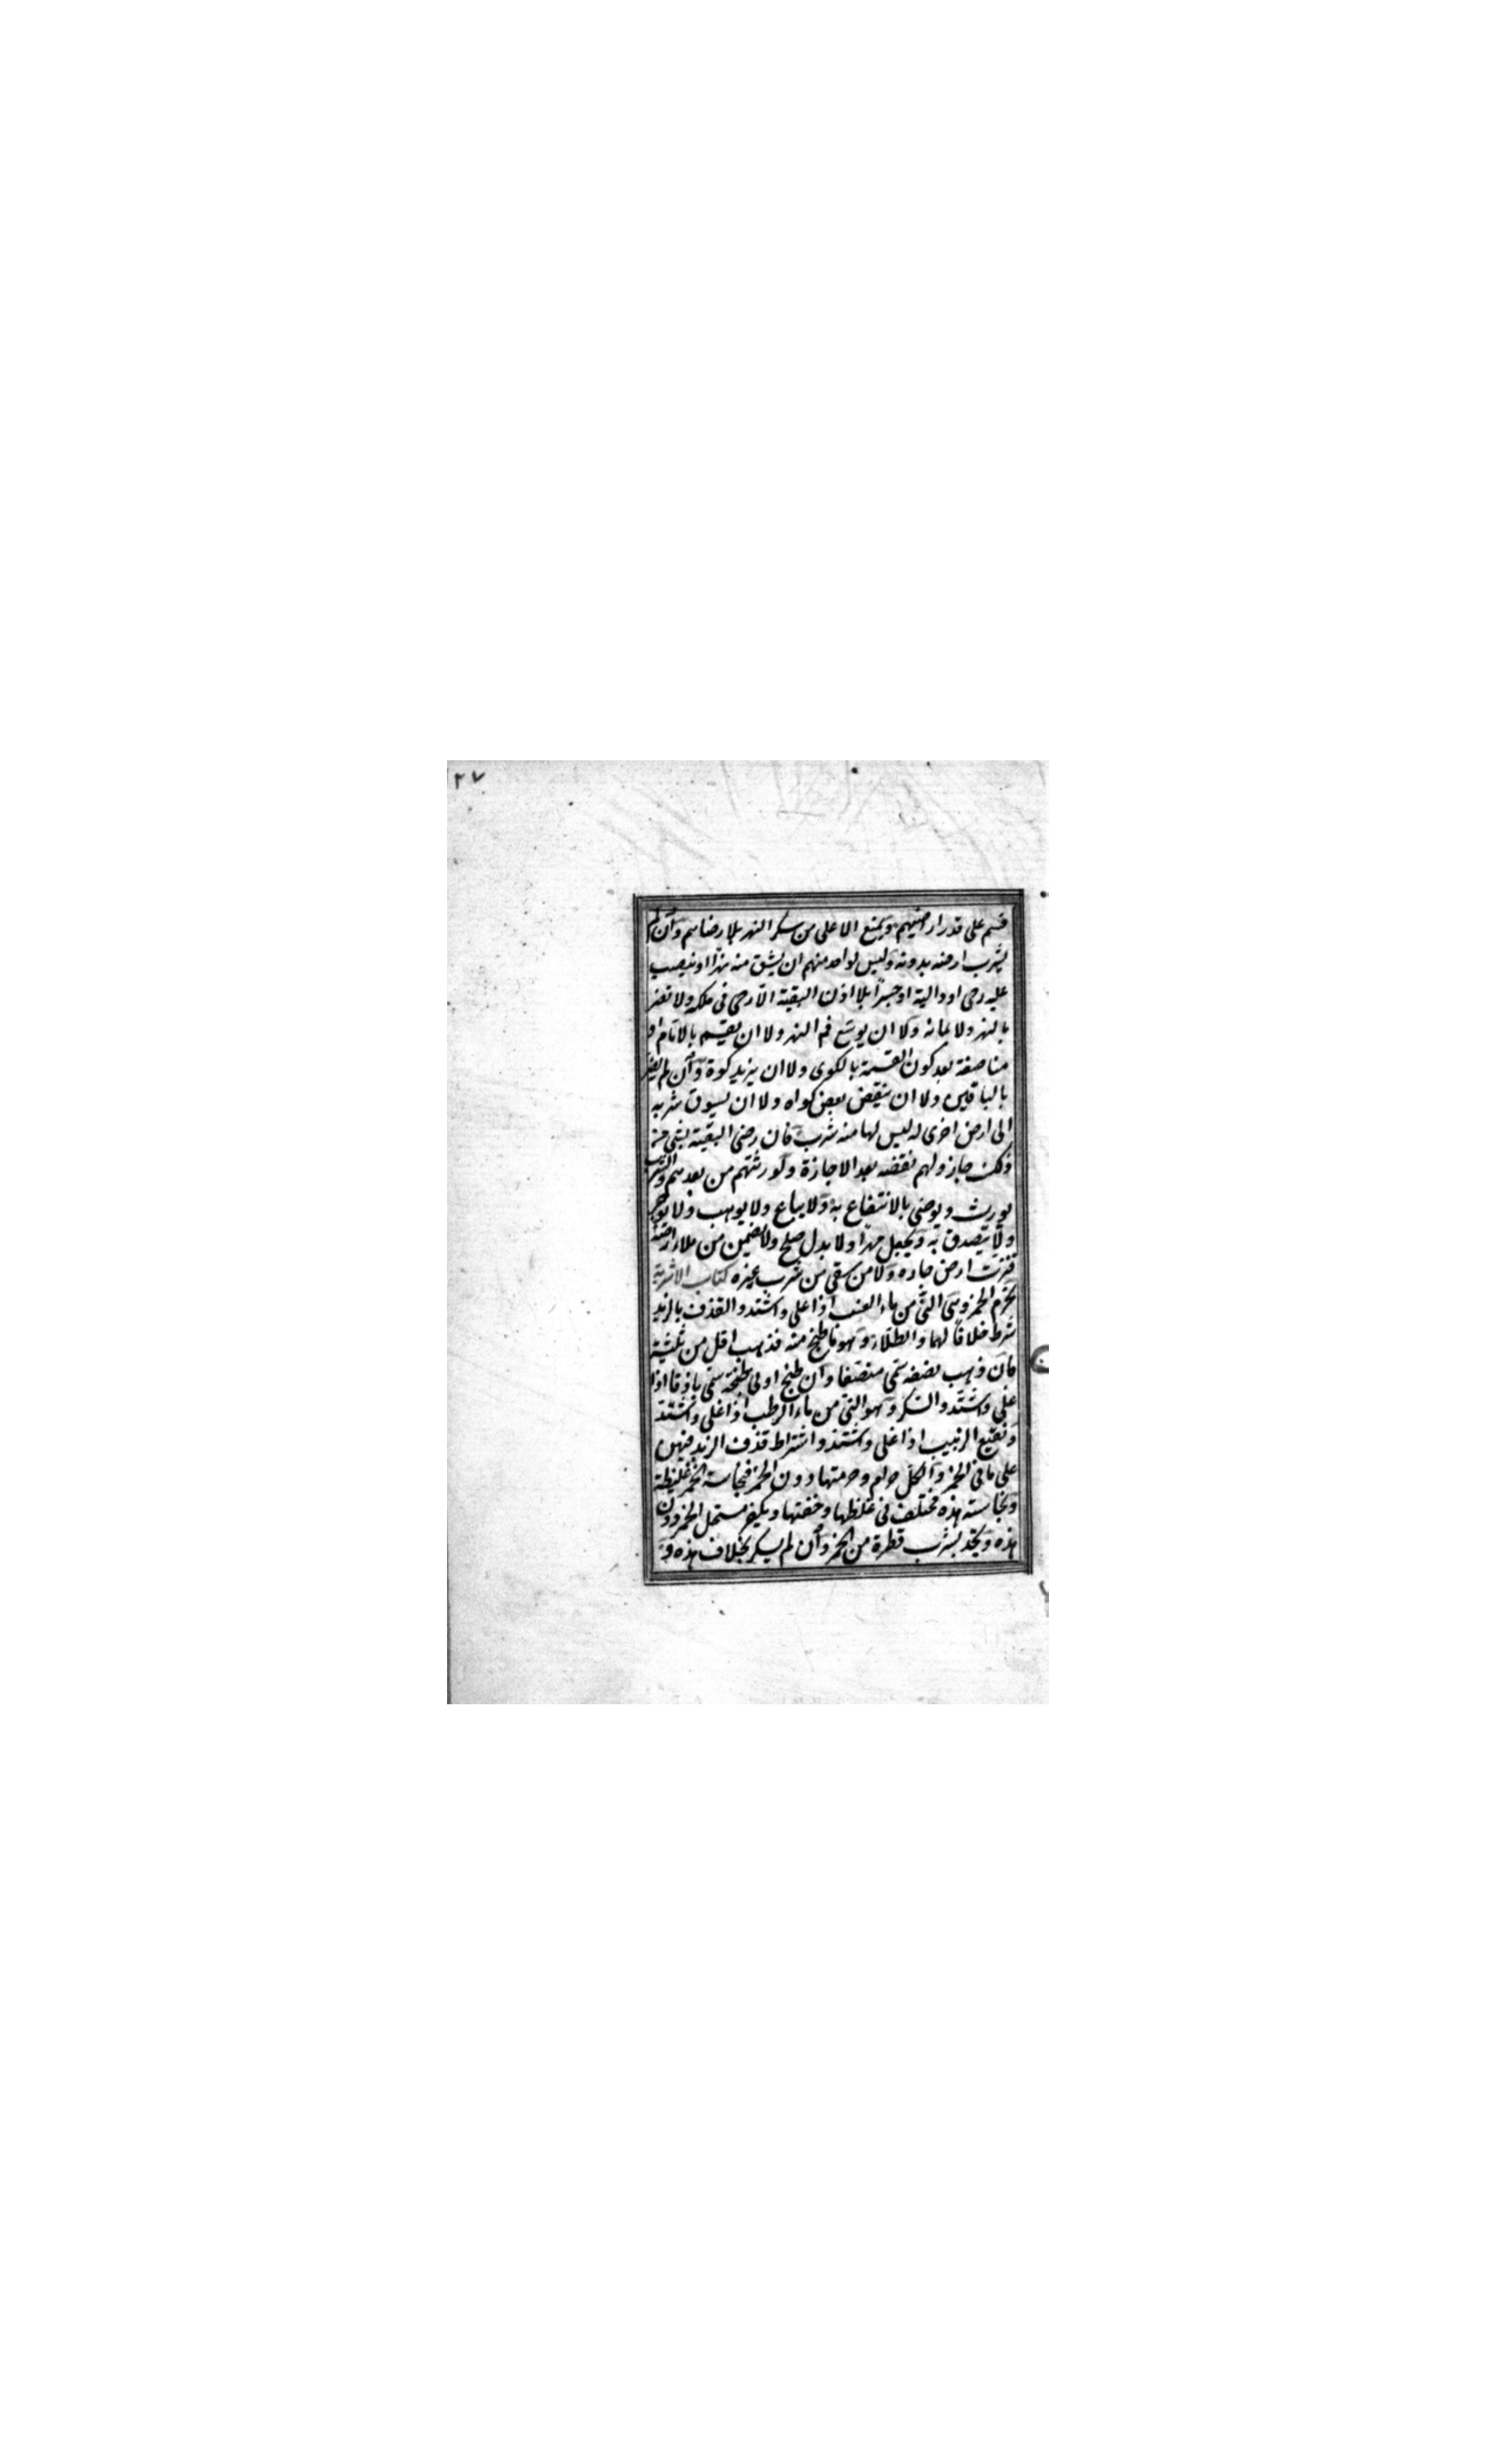 ٢٧
قسم على قدر اراضيهم ويمنع الاعلى من سكر النهر بلا رضاهم وان لم
تشرب ارضه بدونه وليس لواحد منهم ان يشق منه نهرا او ينصب
عليه رحى او دالية او جسرا بلا اذن البقية الا رحى في ملكه ولا تضر
بالنهر ولا بمائه ولا ان يوسع فم النهر ولا ان يقسم بالايام او
مناصفة بعد كون القسمة بالكوى ولا ان يزيد كوة وان لم يضر
بالباقين ولا ان ينقض بعض كواه ولا ان يسوق شربه
الى ارض اخرى له ليس لها منه شرب فان رضى البقية بشي من
ذلك جاز ولهم نقضه بعد الاجازة ولورثتهم من بعدهم والشرب
يورث ويوصى بالانتفاع به ولا يباع ولا يوهب ولا يوجر
ولا يتصدق به ويجعل مهرا ولا بدل صلح ولا يضمن من ملاء ارضه
فنزت ارض جاره ولا من سقى من شرب غيره كتاب الاشربة
تحرم الخمر وهى النى من ماء العنب اذا غلى واشتد والقذف بالزبد
شرط خلافا لهما والطلاء وهو ما طبخ منه فذهب اقل من ثلثيه
فان ذهب نصفه سمى منصفا وان طبخ ادنى طبخة سمى باذقا اذا
غلى واشتد والسكر وهو النى من ماء الرطب اذا غلى واشتد
ونقيع الزبيب اذا غلى واشتد واشتراط قذف الزبد فيهن
على ما في الخمر والكل حرام وحرمتها دون الخمر فنجاسة الخمر غليظة
ونجاسة هذه مختلف في غلظها وخفتها ويكفر مستحل الخمر دون
هذه ويحد بشرب قطرة من الخمر وان لم يسكر بخلاف هذه و